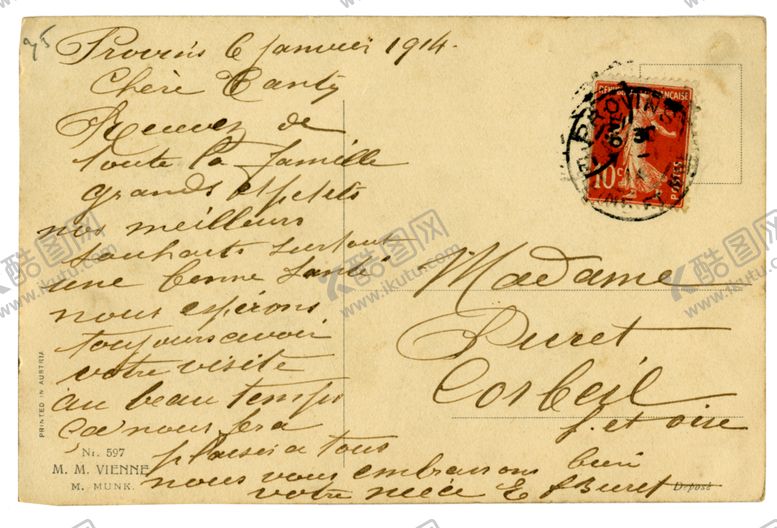 Provins 6 janvier 1914.
Chère Tanty
Recevez de
toute la famille
grands et petits
nos meilleurs
souhaits surtout
une bonne santé
nous espérons
toujours avoir
votre visite
au beau temps
ça nous fera
plaisir a tous
nous vous embrassons bien
votre nièce E Buret
Madame
Buret
Corbeil
S. et Oise
PROVINS
RÉPUBLIQUE FRANÇAISE
10c
POSTES
PRINTED IN AUSTRIA
Nr. 597
M. M. VIENNE
M. MUNK.
Deposé
95
酷图网
www.ikutu.com